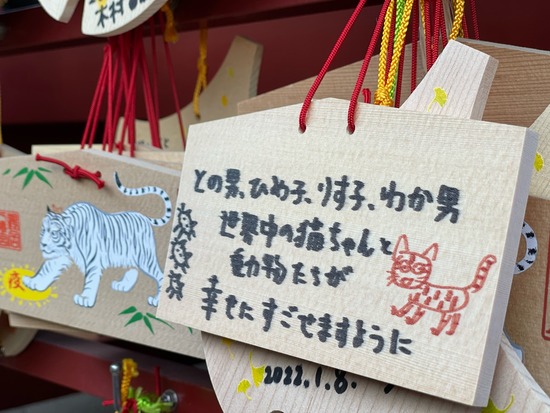 との男、ひめ子、りす子、わか男
世界中の猫ちゃんと
動物たちが
幸せにすごせますように
2022.1.8.
夜